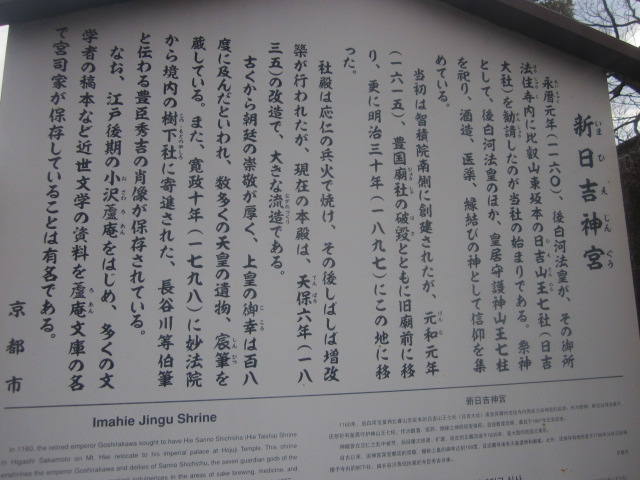 新日吉神宮
いまひえじんぐう
永暦元年（一一六〇）、後白河法皇が、その御所
法住寺内に比叡山東坂本の日吉山王七社（日吉
大社）を勧請したのが当社の始まりである。祭神
として、後白河法皇のほか、皇居守護神山王七柱
を祀り、酒造、医薬、縁結びの神として信仰を集
めている。
当初は智積院南側に創建されたが、元和元年
（一六一五）、豊国廟社の破毀とともに旧廟前に移
り、更に明治三十年（一八九七）にこの地に移
った。
社殿は応仁の兵火で焼け、その後しばしば増改
築が行われたが、現在の本殿は、天保六年（一八
三五）の改造で、大きな流造である。
古くから朝廷の崇敬が厚く、上皇の御幸は百八
度に及んだといわれ、数多くの天皇の遺物、宸筆を
蔵している。また、寛政十年（一七九八）に妙法院
から境内の樹下社に寄進された、長谷川等伯筆
と伝わる豊臣秀吉の肖像が保存されている。
なお、江戸後期の小沢蘆庵をはじめ、多くの文
学者の稿本など近世文学の資料を蘆庵文庫の名
で宮司家が保存していることは有名である。
京都市
Imahie Jingu Shrine
In 1160, the retired emperor Goshirakawa sought to have Hie Sanno Shichisha (Hie Taisha) Shrine
in Higashi Sakamoto on Mt. Hiei relocate to his imperial palace at Hojuji Temple. This shrine
enshrines the emperor Goshirakawa and deities of Sanno Shichichu, the seven guardian gods of the
in the areas of sake brewing, medicine, and
新日吉神宮